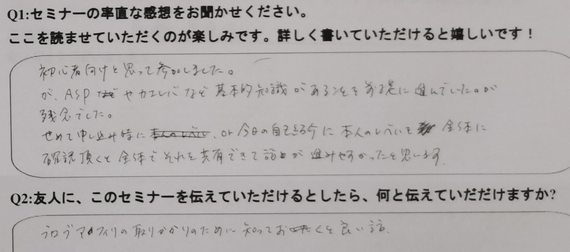 Q1:セミナーの率直な感想をお聞かせください。
ここを読ませていただくのが楽しみです。詳しく書いていただけると嬉しいです！
初心者向けと思って参加しました。
が、ASP やカエレバなど基本的知識があることを前提に進んでいたのが
残念でした。
せめて申し込み時に 、or 今日の自己紹介に本人のレベルを 全体に
確認頂くと全体でそれを共有できて話が進みやすかったと思います
Q2:友人に、このセミナーを伝えていただけるとしたら、何と伝えていだだけますか?
ブログアフィリの取りかかりのために知っておくと良い話.